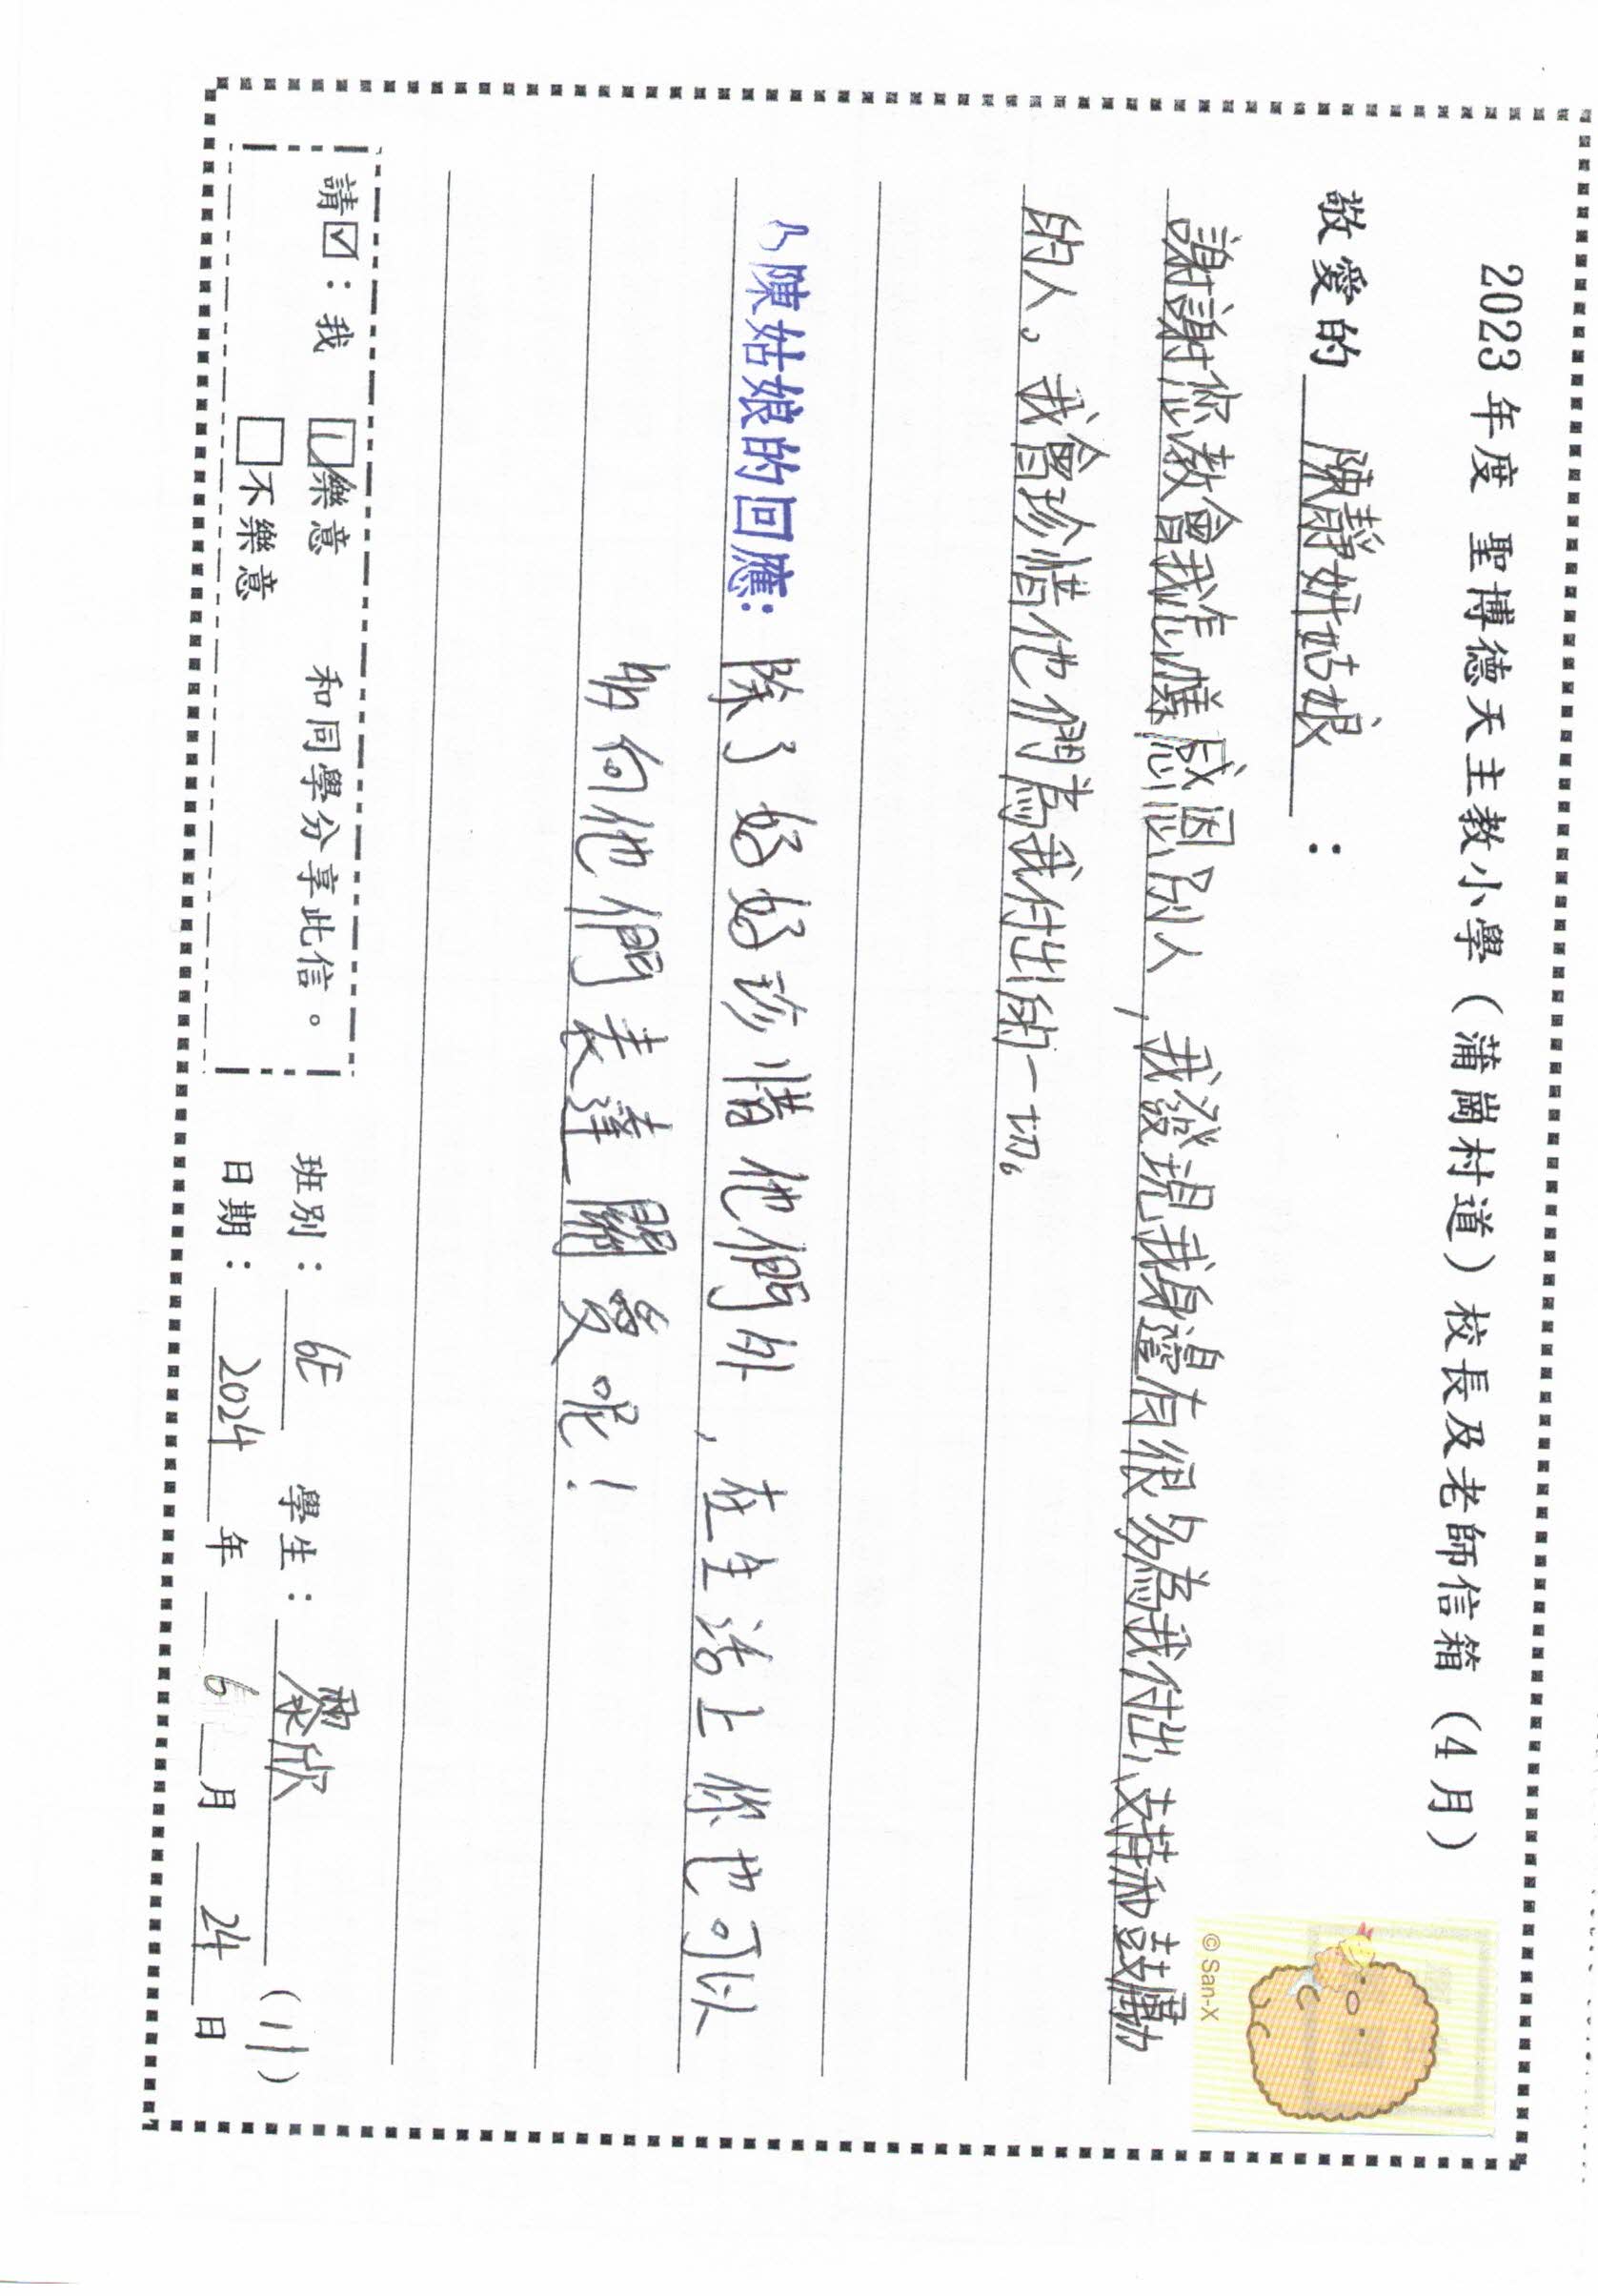 2023 年度 聖博德天主教小學（蒲崗村道）校長及老師信箱（4 月）
敬愛的 陳靜妍姑娘 :
謝謝你教會我怎樣感恩別人，我發現我身邊有很多為我付出、支持和鼓勵
的人。我會珍惜他們為我付出的一切。
陳姑娘的回應: 除了好好珍惜他們外，在生活上你也可以
多向他們表達關愛呢！
請☑：我 ☑樂意 和同學分享此信。
□不樂意
班別：6E 學生：黎欣 (11)
日期：2024 年 6 月 24 日
© San-X